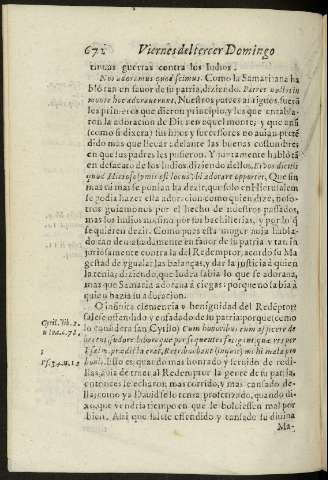 672 Viernes del tercer Domingo
tinuas guerras contra los Iudios.
Nos adoramus quod scimus. Como la Samaritana ha
blò tan en fauor de su patria, diziendo. Patres nostri in
monte hoc adorauerunt, Nuestros padres antiguos, fuerõ
los primeros que dieron principio, y los que entabla-
ron la adoracion de Dios en aquel monte, y que ansi
(como si dixera) sus hijos y successores no auian perdi
dido mas que lleuar adelante las buenas costumbres
en que sus padres les pusieron. Y juntamente hablò tã
en desacato de los Iudios diziendo dellos,
quod Hierosolymis est locus, vbi adorare oportet, Que sin
mas ni mas se ponian ha dezir, que solo en Hierusalem
se podia hazer esta adoracion: como quien dize, noso-
tros guiamonos por el hecho de nuestros passados,
mas los Iudios no sino por sus bachillerias, y por lo q̃
se quieren dezir. Como pues esta muger auia habla-
do tan en fauor de su patria y tan in
juriosamente contra la del Redemptor, acudio su Ma
gestad de ygualar las balanças, y dar la justicia à quien
la tenia; diziendo, que Iudea sabia lo que se adoraua,
mas que Samaria adoraua à ciegas: porque no sabia à
quien hazia su adoracion.
O infinita clemencia y benignidad del Redẽptor:
salese offendido y enfadado de su patria: porque (como
lo considera san Cyrilo)
Cyril. lib. 2.
1
Ps. 34. n. 13
Esto es quando mas honrado y seruido de rodi
llas, auia de traer al Redemptor la gente de su patria,
entonces le echaron mas corrido, y mas cansado de-
llas: como ya Dauid selo tenia profetizado, quando di-
xo, que vendria tiempo en que le boluiessen mal por
bien. Assi que salese offendido y cansado su diuina
Ma-